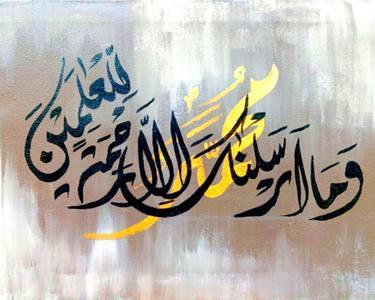 وَمَا أَرْسَلْنَاكَ إِلَّا رَحْمَةً لِّلْعَٰلَمِينَ
مُحَمَّد